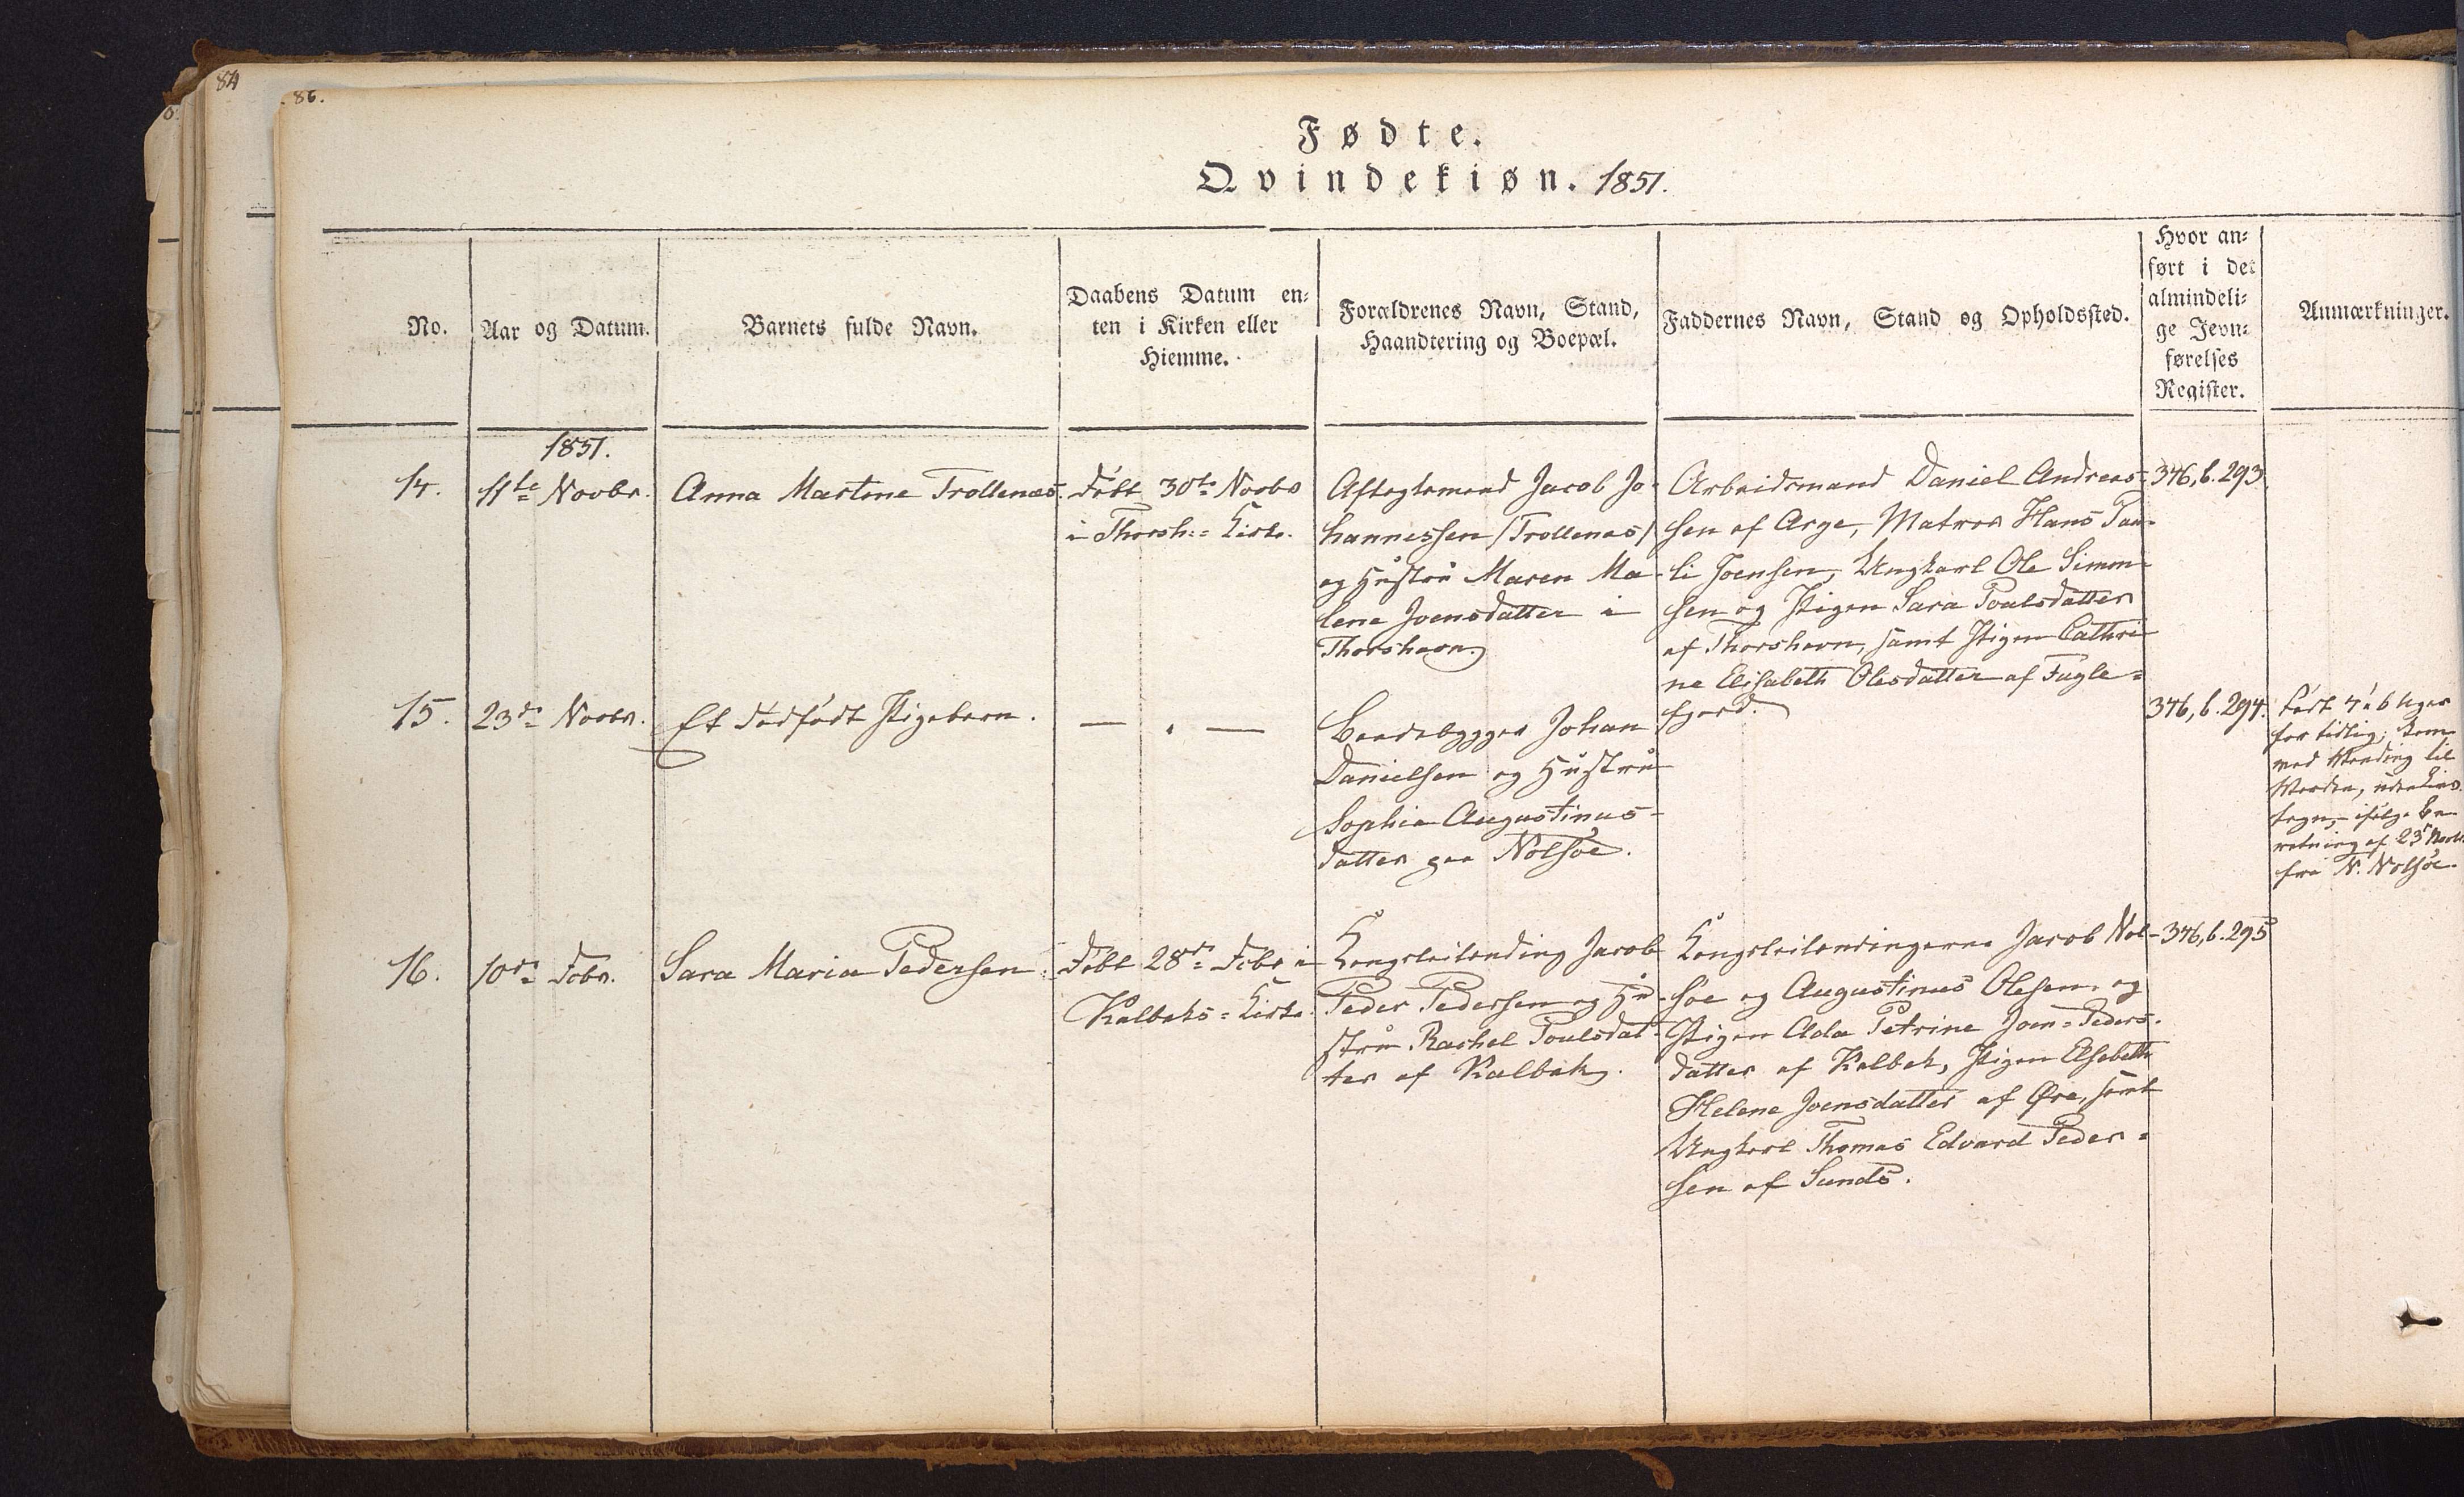 84
86.
Fødte.
Qvindekiøn. 1851.
No.
Aar og Datum.
Barnets fulde Navn.
Daabens Datum en-
ten i Kirken eller
Hiemme.
Forældrenes Navn, Stand,
Haandtering og Boepæl.
Faddernes Navn, Stand og Opholdssted.
Hvor an-
ført i det
almindeli-
ge Jevn-
førelses
Register.
Anmærkninger.
1851.
14.
11te Novbr.
Anna Martine Trollenæs.
Døbt 30te Novbr
i Thorsh.= Kirke.
Aftægtsmand Jacob Jo-
hannessen /Trollenæs/
og Hustru Maren Ma-
lene Joensdatter i
Thorshavn.
Arbeidsmand Daniel Andreas-
sen af Arge, Matros Hans Pau-
li Joensen, Ungkarl Ole Simon-
sen og Pigen Sara Poulsdatter
af Thorshavn, samt Pigen Cathri-
ne Elisabeth Olesdatter af Fugle-
fjord.
346, b. 293
15.
23de Novbr.
Et dødfødt Pigebarn.
— " —
Baadebygger Johan
Danielsen og Hustru
Sophie Augustinus-
datter paa Nolsøe.
346, b. 294.
Født 4 à 6 Uger
for tidlig; kom
med Vending til
Verden, uden Livs-
tegn, ifølge Be-
retning af 23de Novbr.
fra N. Nolsøe.
16.
10de Febr.
Sara Maria Pedersen
Døbt 28de Febr i
Kalbaks= Kirke.
Kongsleilending Jacob
Peder Pedersen og Hu-
stru Rachel Poulsdat-
ter af Kalbak.
Kongsleilendingerne Jacob Nol-
søe og Augustinus Olesen, og
Pigen Alda Petrine Joen=Peders-
datter af Kalbak, Pigen Elsebeth
Helene Joensdatter af Øre, samt
Ungkarl Thomas Edvard Peder-
sen af Sunds.
346, b. 295